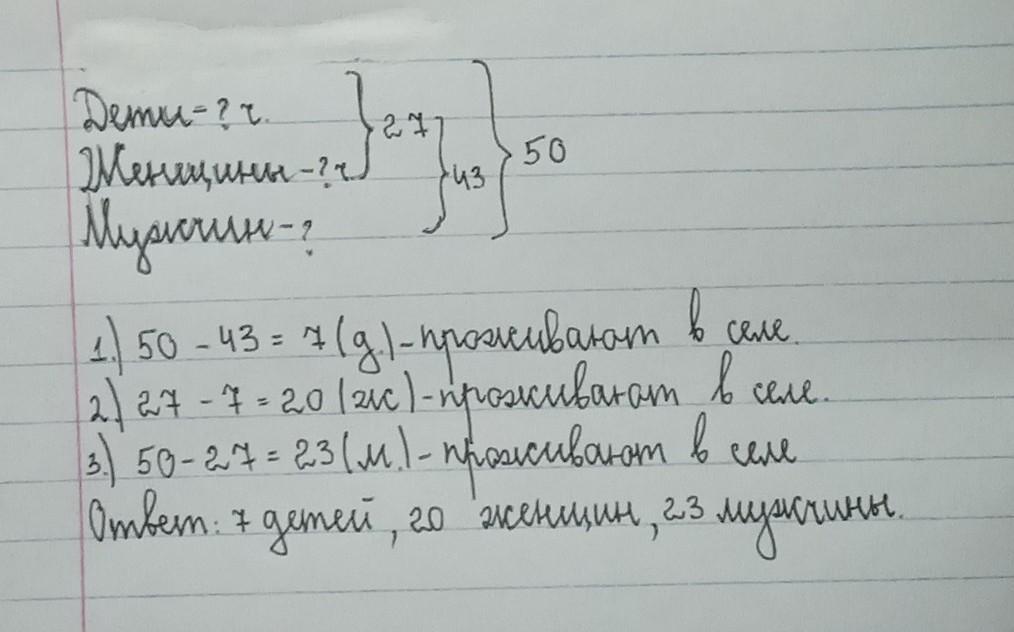 Дети-? ч. } 27 } 50
Женщины-? ч. } 43
Мужчин-?
1.) 50 - 43 = 7 (д.)-проживают в селе.
2) 27 - 7 = 20 (ж)-проживают в селе.
3.) 50 - 27 = 23 (м.)-проживают в селе
Ответ: 7 детей, 20 женщин, 23 мужчины.